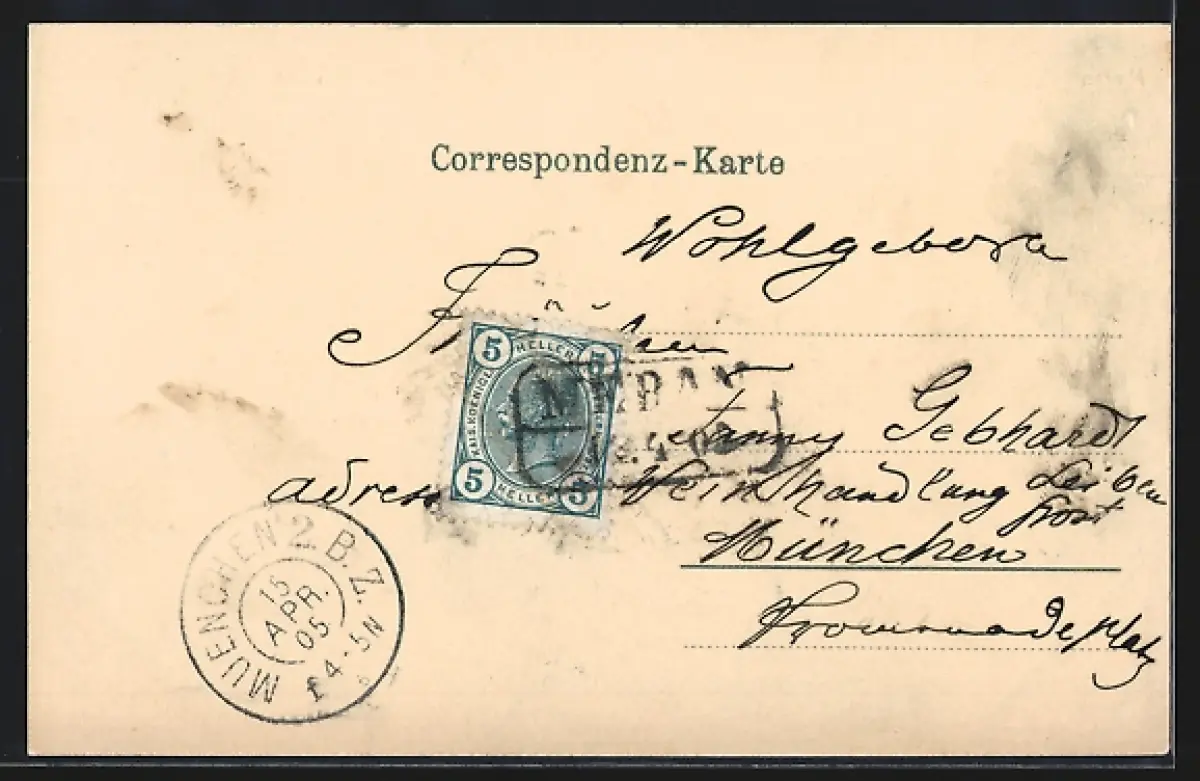 Correspondenz-Karte
Wohlgeborn
Fräulein
Fanny Gebhardt
adresse Weinhandlung
München
Promenadeplatz
5 HELLER 5
KAIS. KOENIGL.
5 HELLER 5
MERAN
MUENCHEN 2. B.Z.
15
APR.
05
4-5N